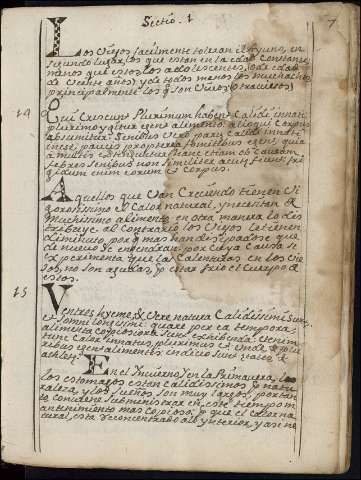 Sectio. 1
7
Los Viejos facilmente toleran el ayuno, en
segundo lugar, los que estan en la edad Constante
menos que estos los adolescentes, o de edad
de veinte años, y de todos menos los muchachos
principalmente los q son Vivos, o traviesos
14
Qui Crescunt Plurimum habent Calidi innati
plurimo igitur egent alimento alioqui Corpus
absumitur. Senibus Vero parum calidi innati
inest; paucis propterea fomitibus egent, quia
a multis extinguitur: hanc etiam ob Causam
febres senibus non similiter acutæ fiunt fri
gidum enim eorum est Corpus.
Aquellos que Van Creciendo tienen Vi
gorosissimo el Calor natural, y necesitan de
muchissimo alimento, en otra manera lo dis
tribuye. al Contrario los Viejos le tienen
diminuto, porq mas han desipado se que
de nuevo se engendran: por Cuya Causa se
experimenta que las Calenturas en los Vie
jos, no son agudas, p estar frio el Cuerpo de
estos.
15
Ventres hyeme, & Vere natura Calidissimi Sunt,
& somni longissimi: quare per ea tempora,
alimenta copiosiora sunt exhibenda. Etenim
tunc Calor innatus, plurimus est Unde & pluri
bus egent alimentis. indicio sunt ætates &
athletæ.
En el Invierno, y en la Primavera, 
los estomagos estan calidissimos p natu
raleza, y los sueños son muy largos, por tan
to conviene subministrar en este tiempo m
antenimiento mas copioso; p que el calor na
tural, esta reconcentrado alo ynterior, y asi ne